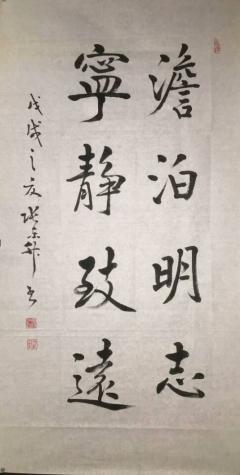 澹泊明志
寧靜致遠
戊戌之夏
书